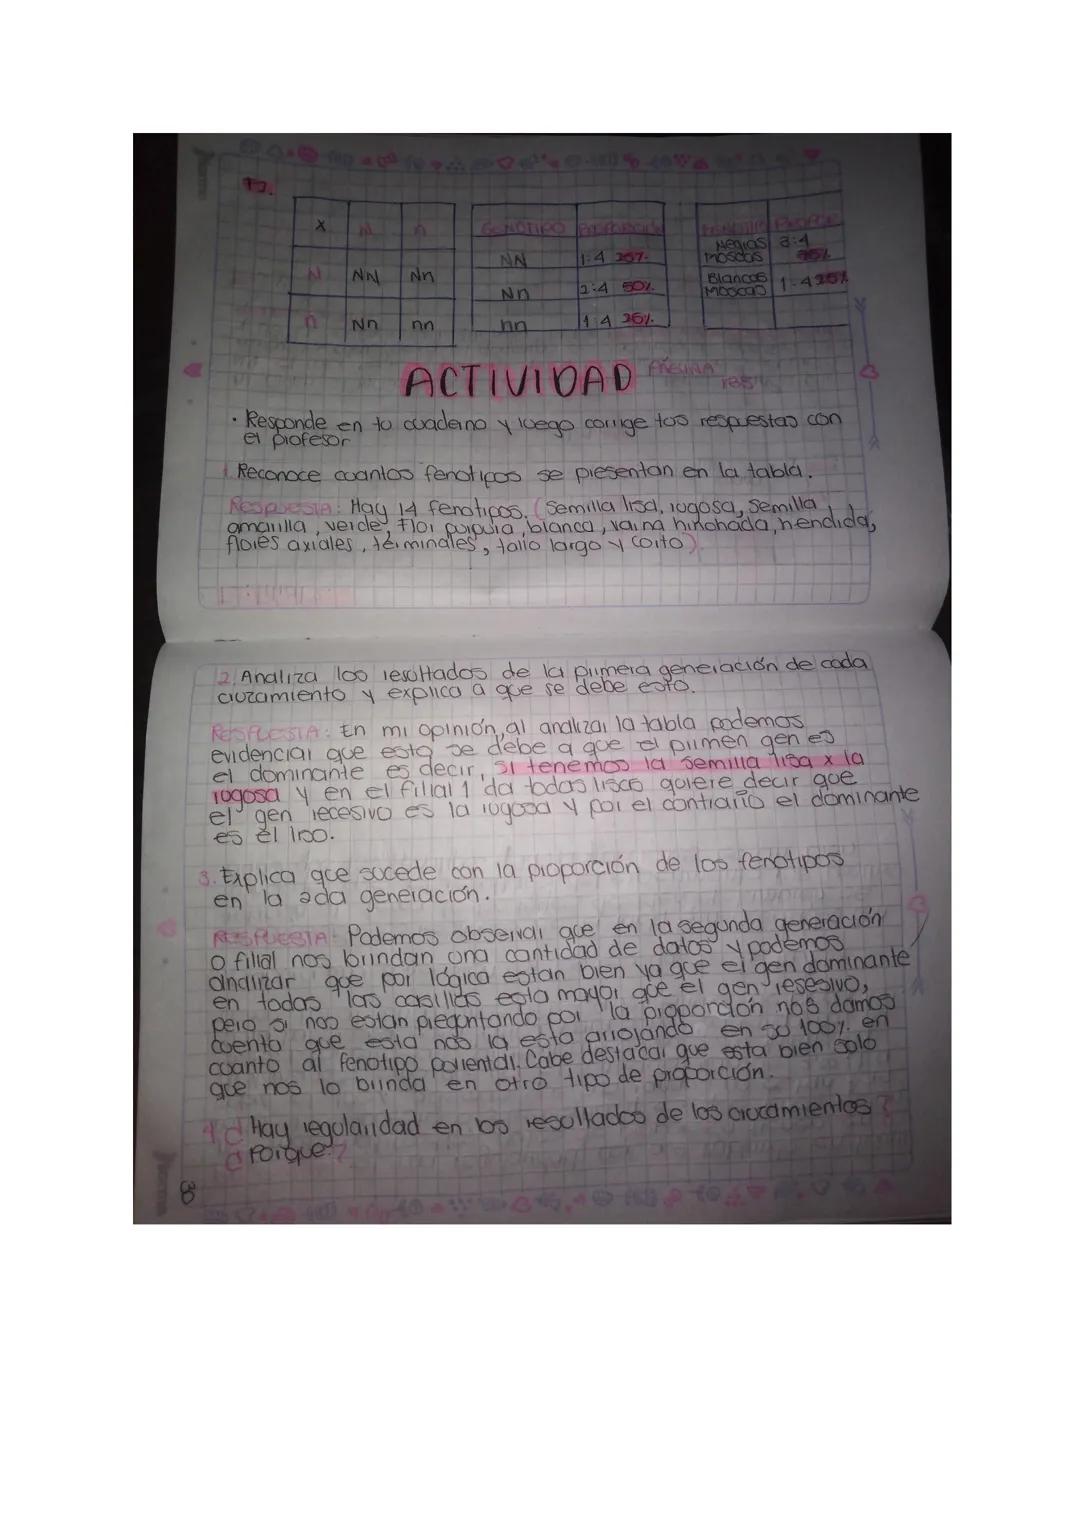 X N n
N NN Nn
n Nn nn
GENOTIPO PROPORCIÓN
NN 1:4 25%
Nn 2:4 50%
nn 1:4 25%
Negras 3:4
moscas
Blancas 1:4 25%
moscas
ACTIVIDAD PÁGINA
• Responde en tu cuaderno y luego corrige tus respuestas con
el profesor
1. Reconoce cuantos fenotipos se presentan en la tabla.
Respuesta: Hay 14 fenotipos. (Semilla lisa, rugosa, semilla
amarilla, verde, flor purpura, blanca, vaina hinchada, hendida,
flores axiales, terminales, tallo largo y corto).
2. Analiza los resultados de la primera generación de cada
cruzamiento y explica a que se debe esto.
RESPUESTA: En mi opinión, al analizar la tabla podemos
evidenciar que esto se debe a que el primen gen es
el dominante es decir, si tenemos la semilla lisa x la
rogosa y en el filial 1 da todas lisas quiere decir que
el gen recesivo es la rugosa y por el contrario el dominante
es el liso.
3. Explica que sucede con la proporción de los fenotipos
en la 2da generación.
RESPUESTA: Podemos observar que en la segunda generación
o filial nos brindan una cantidad de datos y podemos
analizar que por lógica estan bien ya que el gen dominante
en todas las casillas esta mayor que el gen resesivo,
pero si nos estan preguntando por la proporción nos damos
cuenta que esta nos la esta arrojando en su 100% en
cuanto al fenotipo parental. Cabe destacar que esta bien solo
que nos lo brinda en otro tipo de proporción.
4. ¿Hay regularidad en los resultados de los crucamientos?
¿Porque?